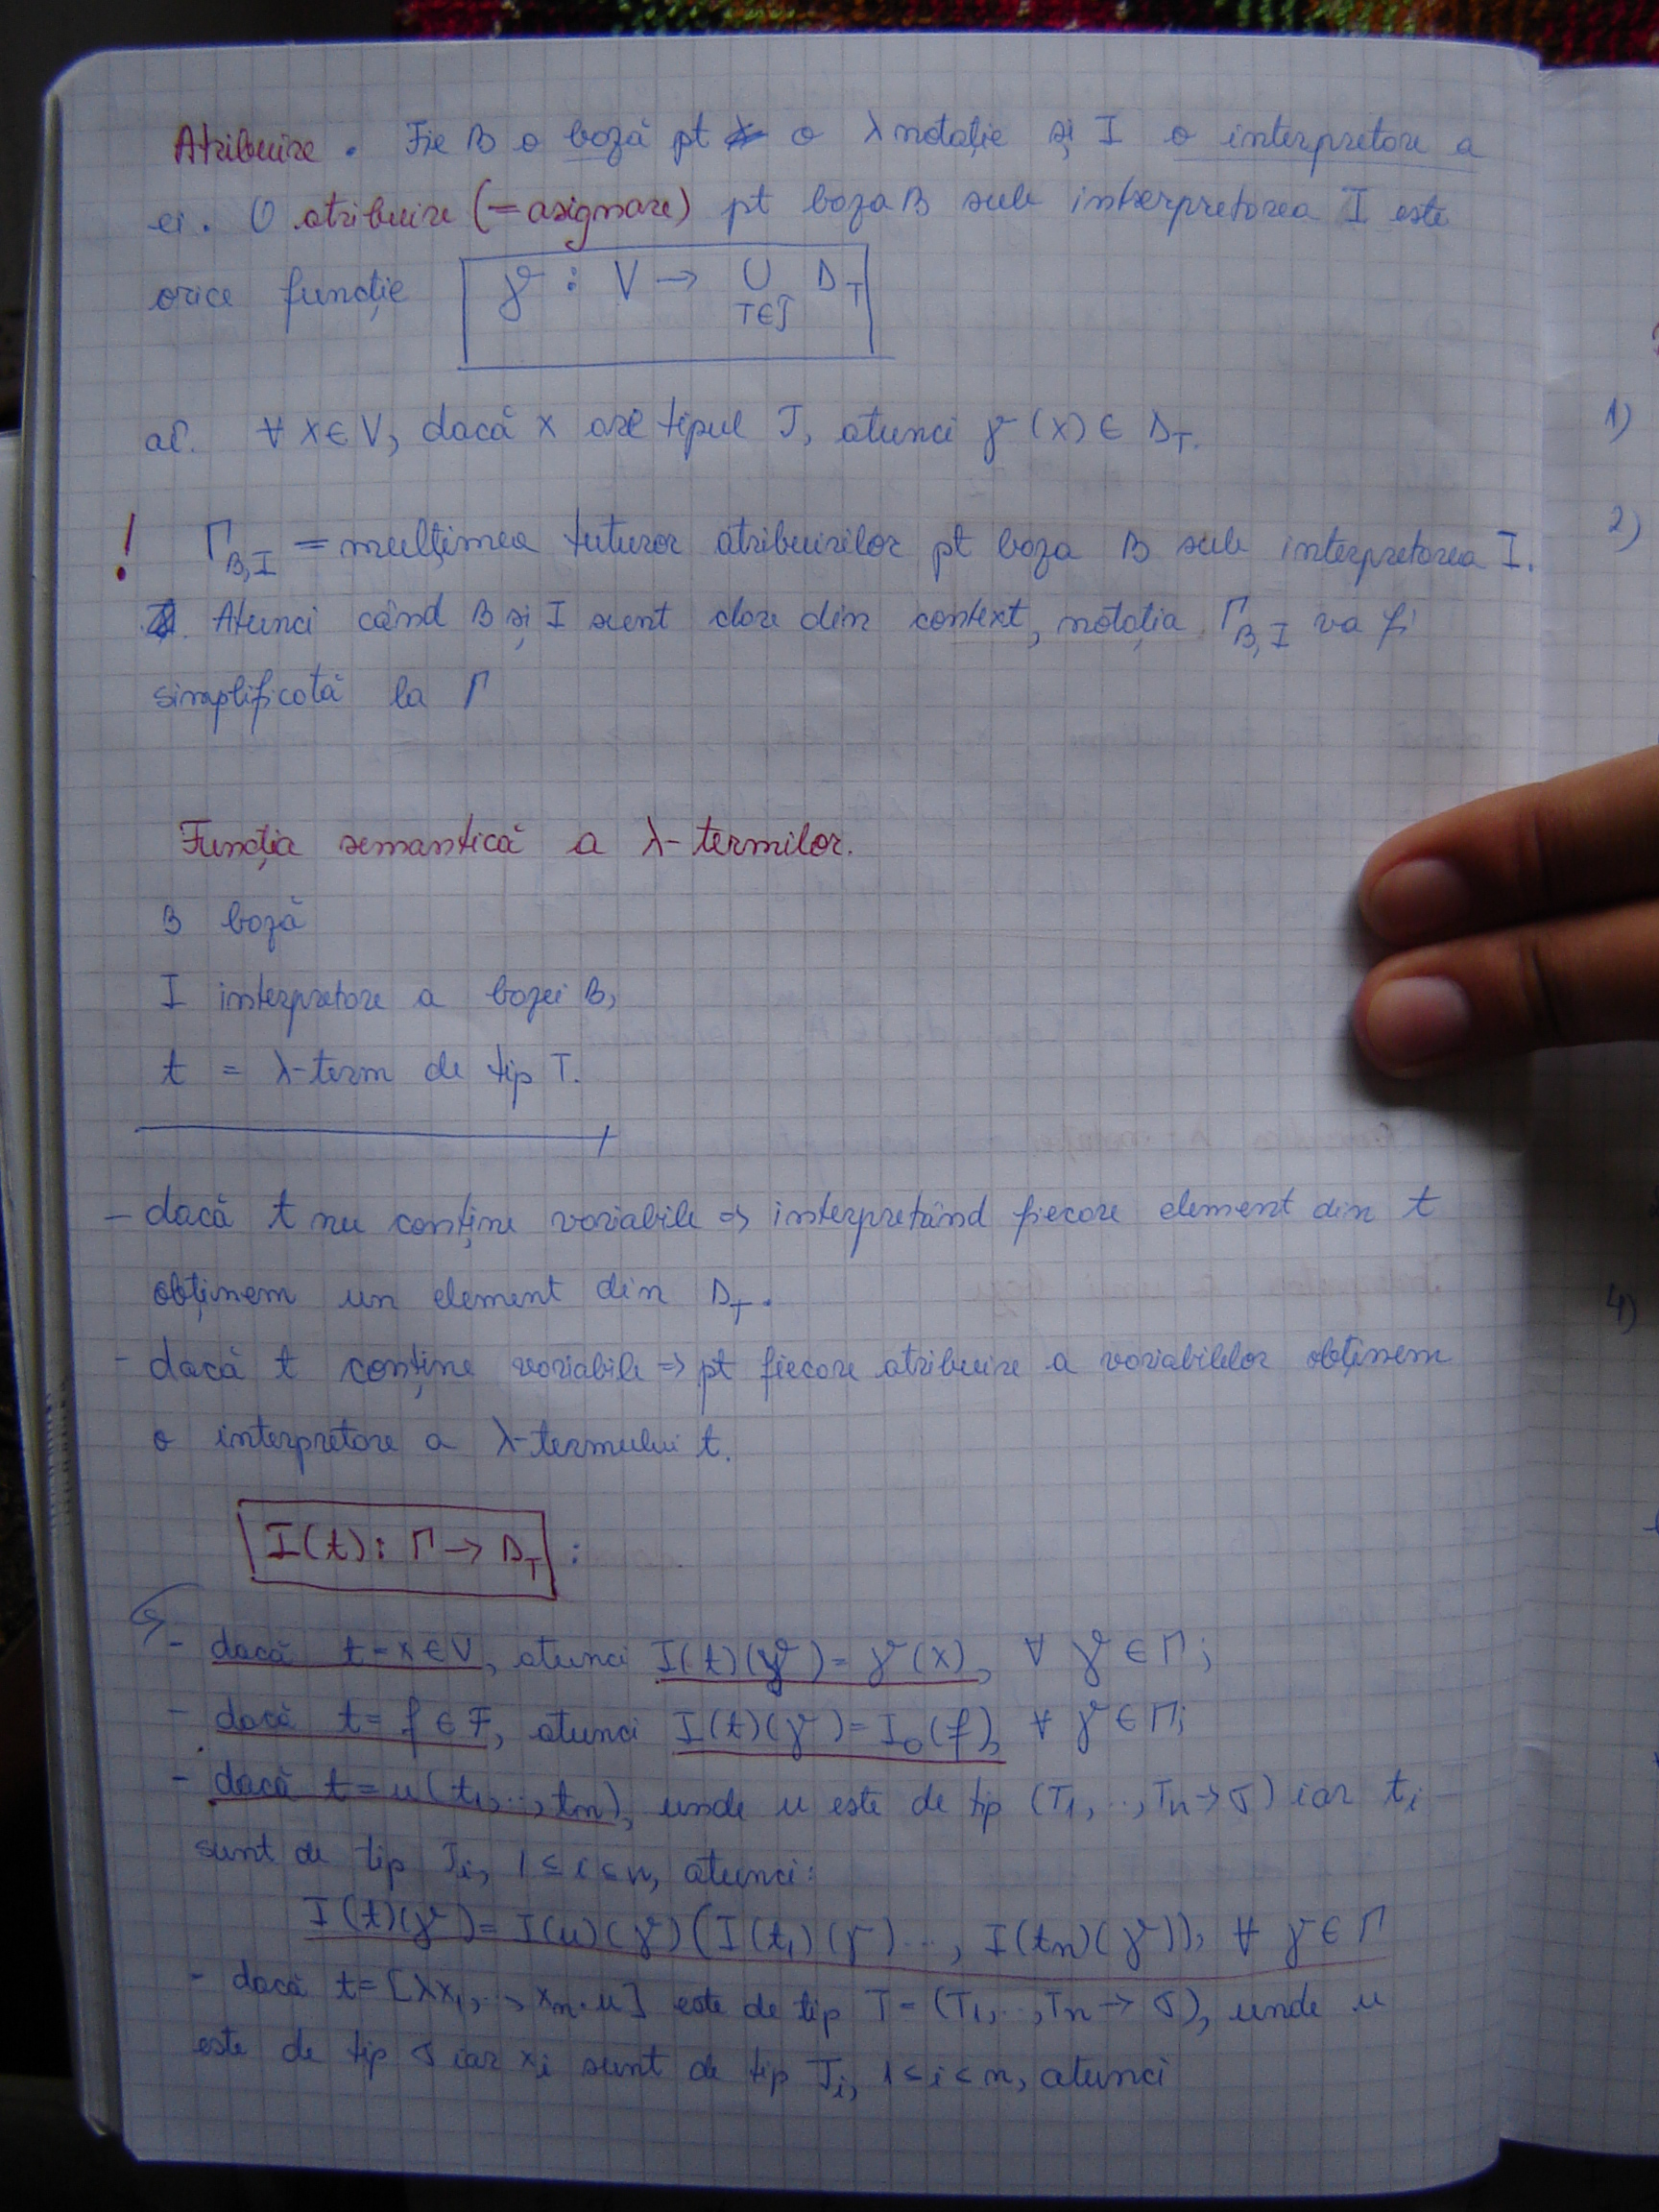 Atribuire. Fie B o bază pt o λ notație și I o interpretare a
ei. O atribuire (=asignare) pt baza B sub interpretarea I este
orice funcție γ : V → ∪ D_T
T∈𝒯
aî. ∀ x∈V, dacă x are tipul T, atunci γ(x) ∈ D_T.
! Γ_B,I = mulțimea tuturor atribuirilor pt baza B sub interpretarea I.
Atunci când B și I sunt clare din context, notația Γ_B,I va fi
simplificată la Γ
Funcția semantică a λ-termilor.
B bază
I interpretare a bazei B,
t = λ-term de tip T.
- dacă t nu conține variabile ⇒ interpretând fiecare element din t
obținem un element din D_T.
- dacă t conține variabile ⇒ pt fiecare atribuire a variabilelor obținem
o interpretare a λ-termului t.
I(t) : Γ → D_T :
- dacă t=x∈V, atunci I(t)(γ)= γ(x), ∀ γ∈Γ;
- dacă t= f ∈ F, atunci I(t)(γ)= I_0(f), ∀ γ∈Γ;
- dacă t=u(t_1,..,t_n), unde u este de tip (T_1,..,T_n→σ) iar t_i
sunt de tip T_i, 1≤i≤n, atunci:
I(t)(γ)= I(u)(γ)(I(t_1)(γ)..., I(t_n)(γ)), ∀ γ∈Γ
- dacă t=[λx_1,..,x_n.u] este de tip T=(T_1,..,T_n→σ), unde u
este de tip σ iar x_i sunt de tip T_i, 1≤i≤n, atunci
1)
2)
4)